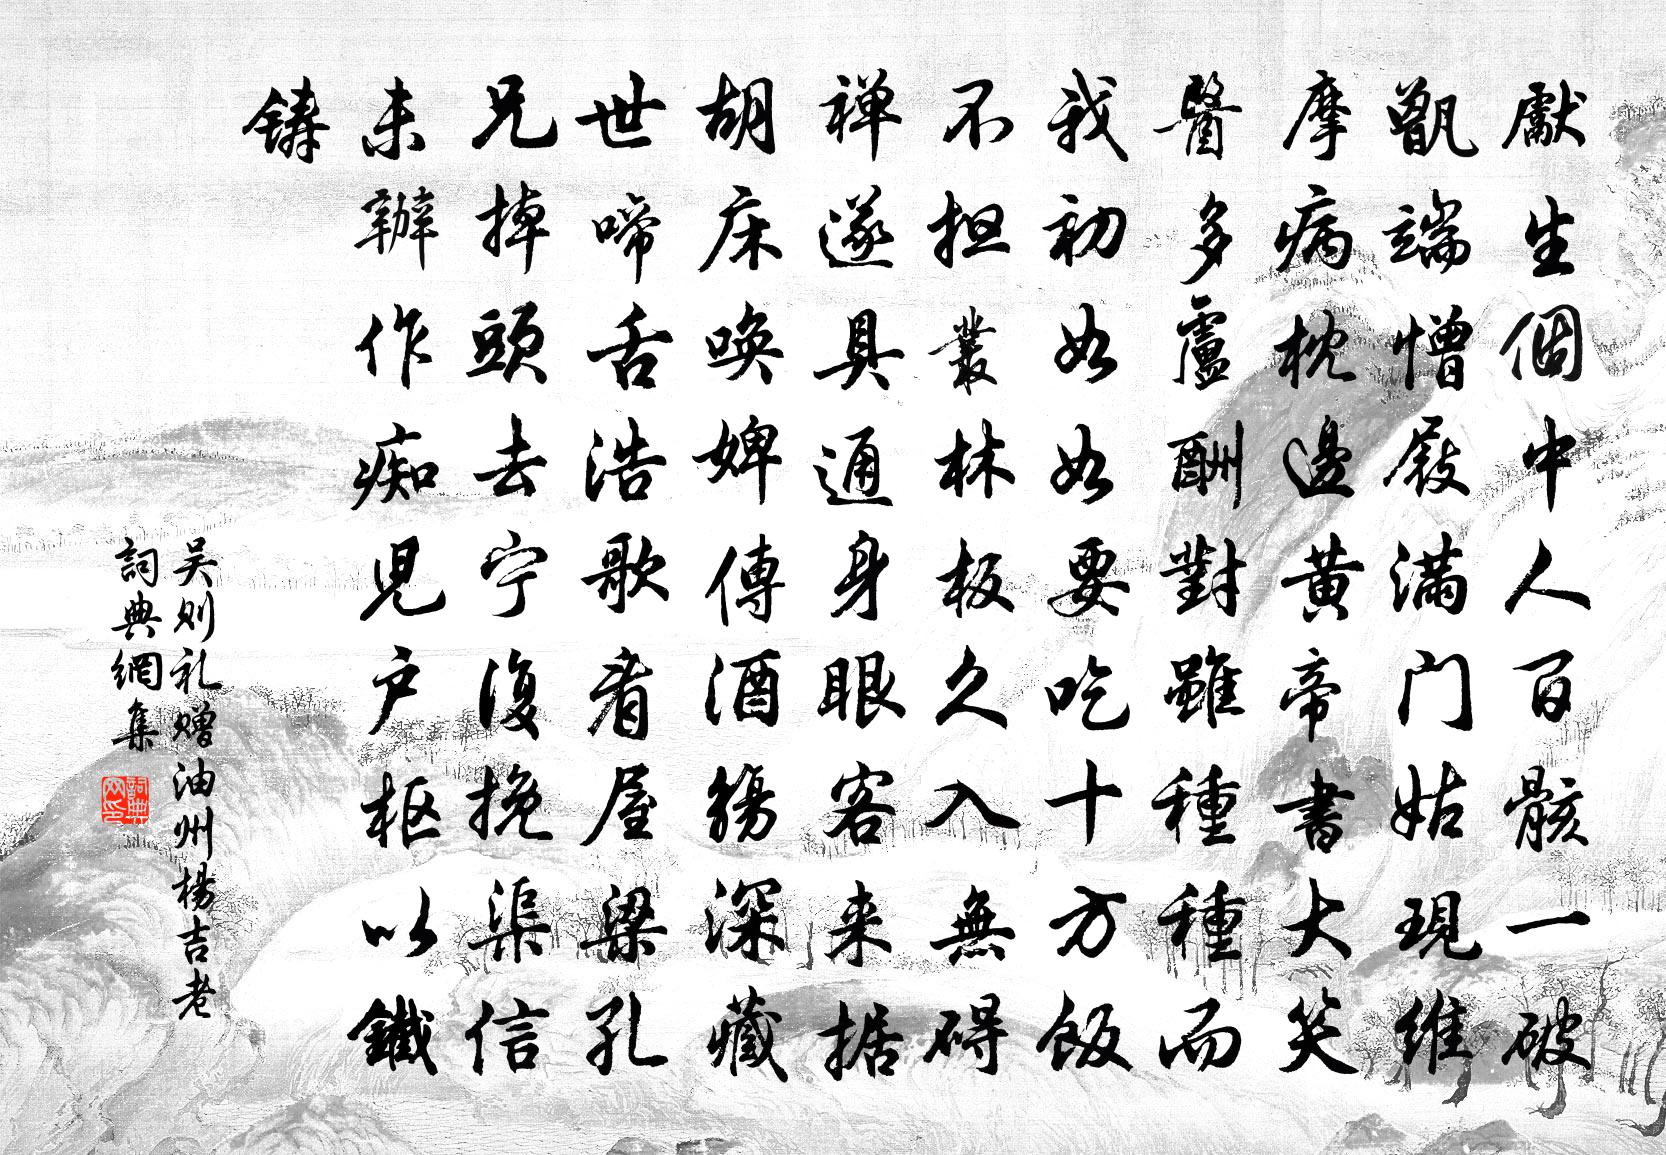 獻生個中人百骸一破
甑端憎屐滿门姑現維
摩病枕邊黄帝書大笑
醫多盧酬對雖種種而
我初如如要吃十方飯
不担叢林板久入無碍
禅遂具通身眼客来据
胡床唤婢傳酒觴深藏
世啼舌浩歌看屋梁孔
兄掉頭去宁復挽渠信
未辦作痴児户枢以鐵
鑄
吴则礼赠油州楊吉老
詞典網集
詞典网印